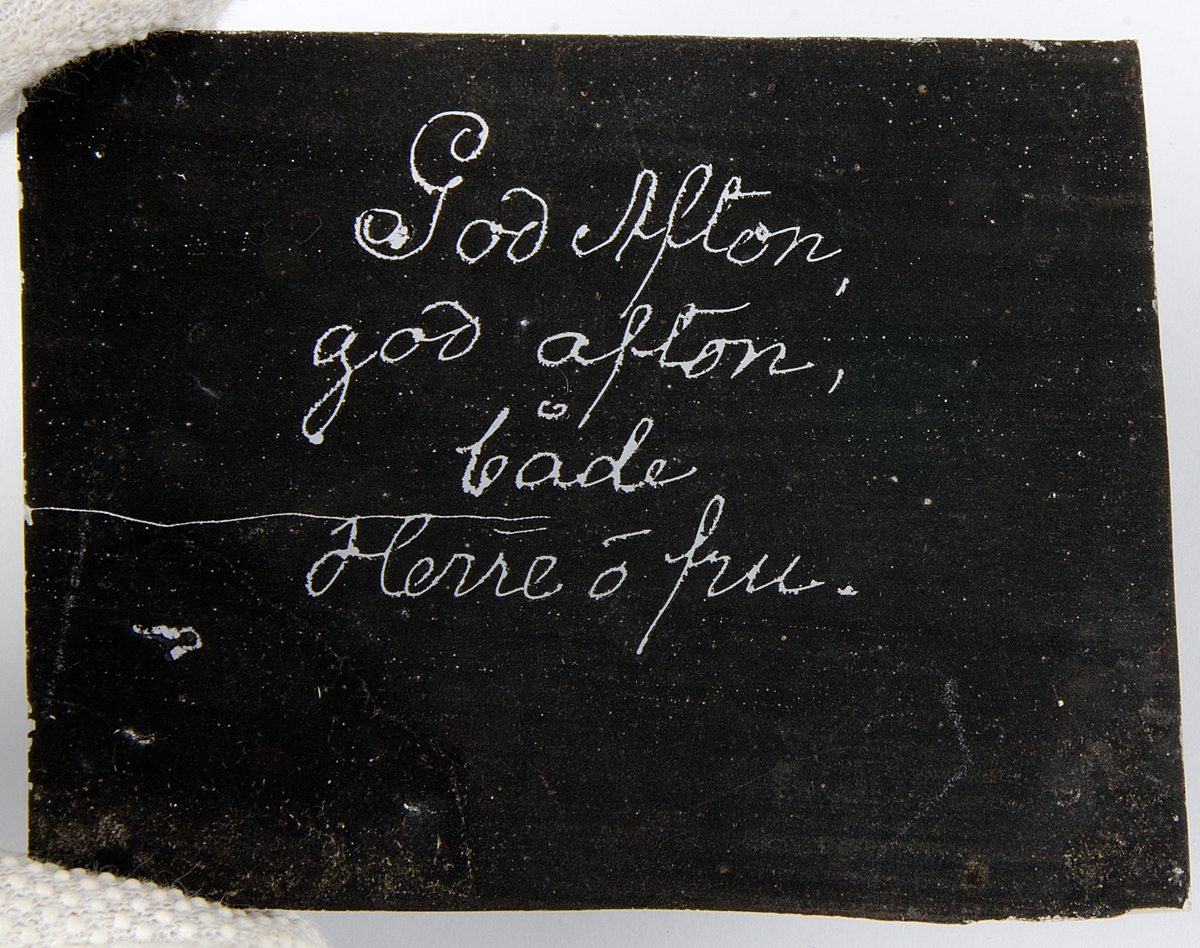 God Afton,
god afton,
både
Herre ō fru.